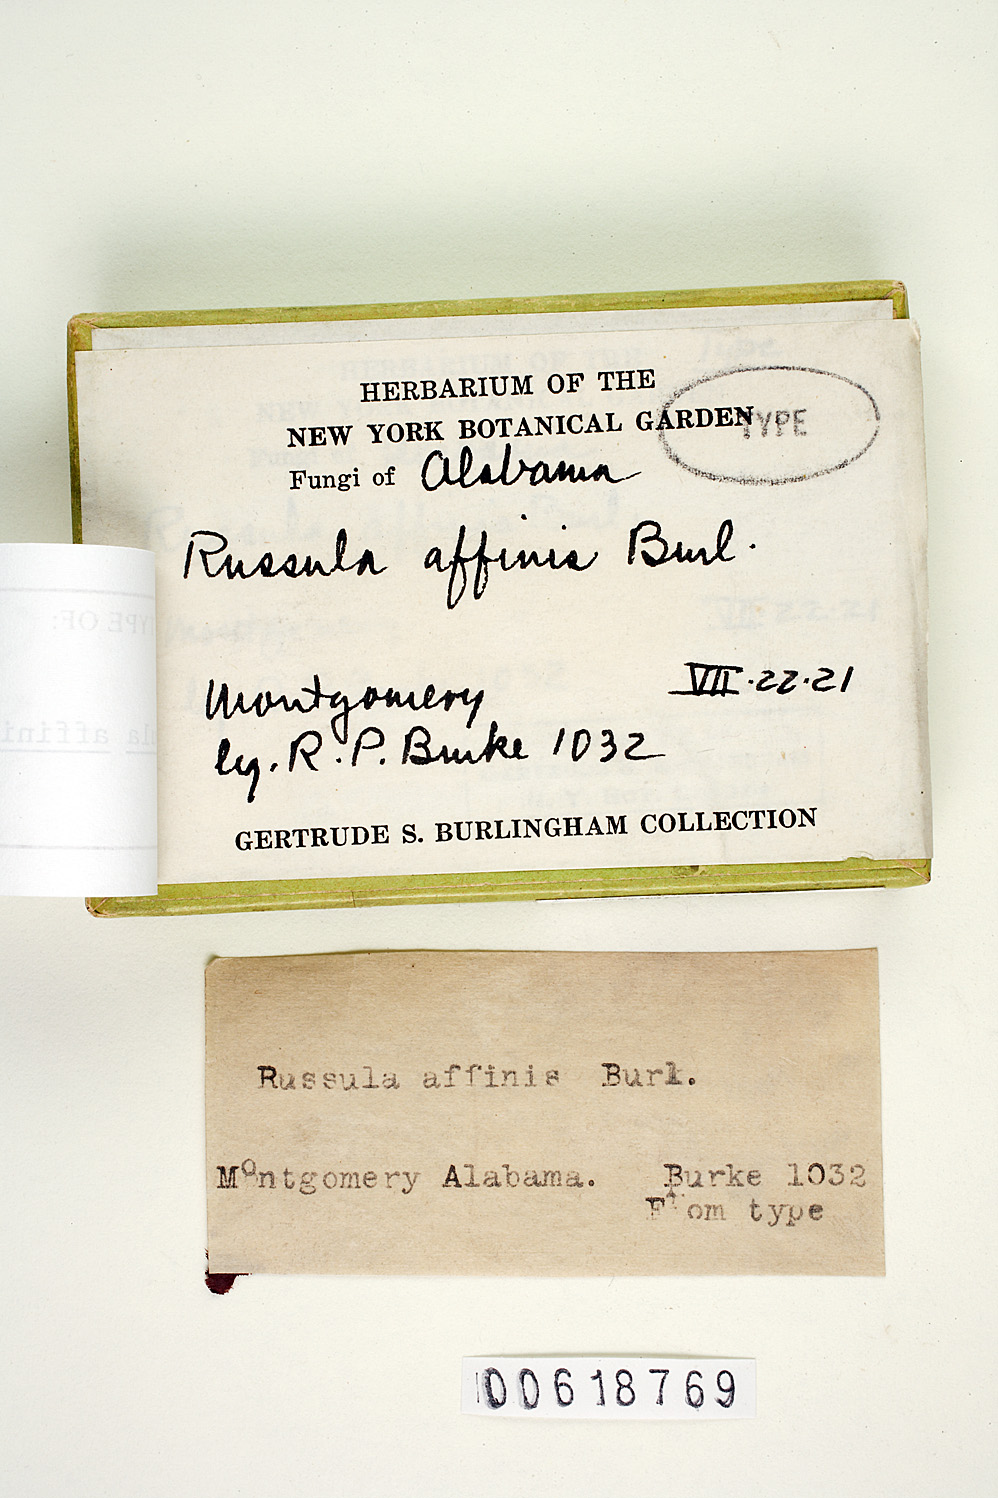 HERBARIUM OF THE
NEW YORK BOTANICAL GARDEN
TYPE
Fungi of Alabama
Russula affinis Burl.
Montgomery VII·22·21
leg. R. P. Burke 1032
GERTRUDE S. BURLINGHAM COLLECTION
Russula affinis Burl.
Montgomery Alabama. Burke 1032
From type
00618769